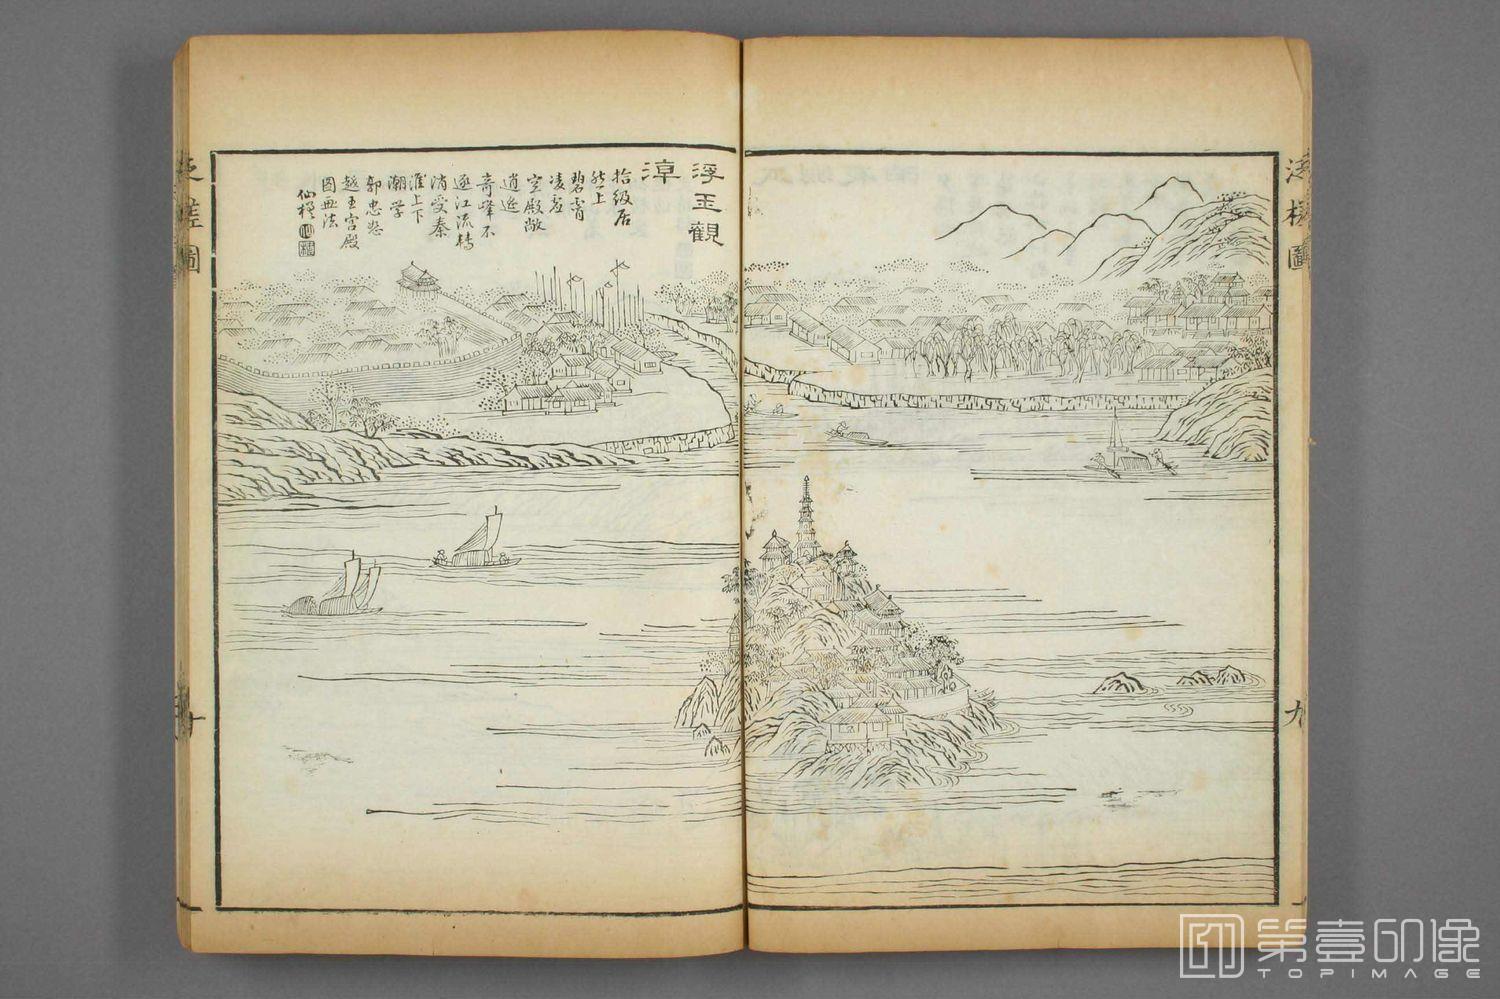 浮玉觀
淳
拾級居
然上
碧霄
凌虛
空殿敞
逍遙
奇峰不
逐江流轉
消受秦
淮上下
潮學
郭忠恕
越王宮殿
圖皿法
仙槎
泛槎圖
九
泛槎圖
十
第壹印像
TOPIMAGE